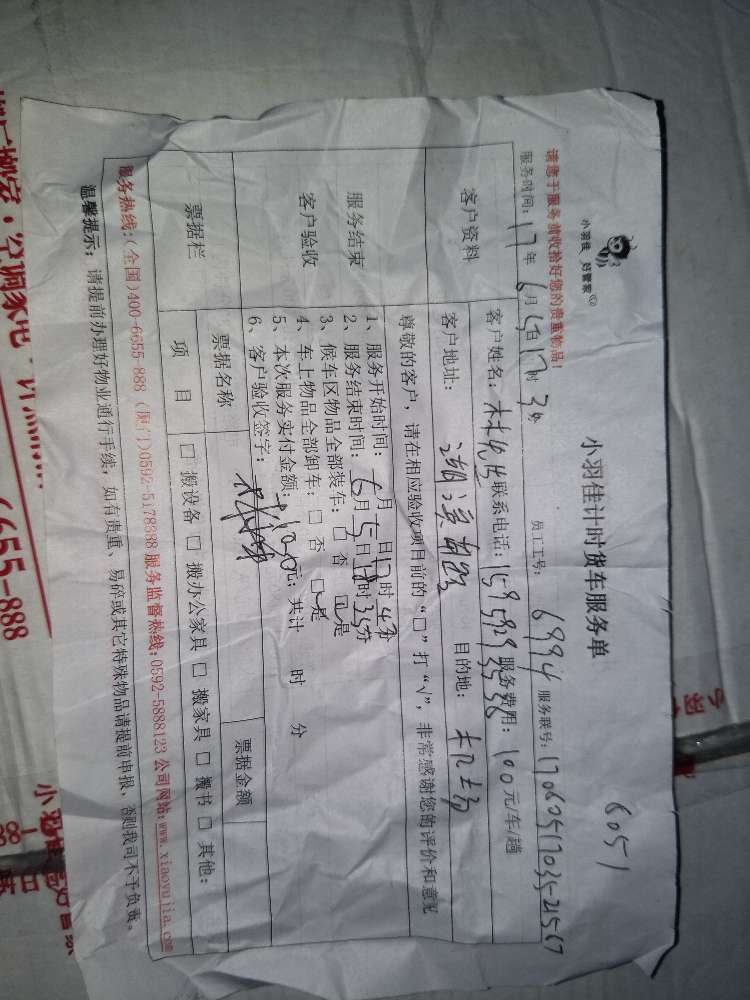 6051
小羽佳 好管家
小羽佳计时货车服务单
请您于服务前收拾好您的贵重物品!
服务时间: 17年 6月 5日 17时 3分 员工工号: 6994 服务联号: 17060517035-21567
客户资料
客户姓名: 联系电话: 服务费用: 100元/车/趟
客户地址: 湖滨南路 目的地: 机场
尊敬的客户, 请在相应验收项目前的“□”打“√”, 非常感谢您的评价和意见
服务结束
客户验收
1、服务开始时间: 月 日17时 分
2、服务结束时间: 6月5日 时35分
3、候车区物品全部装车: □ 否 □ 是
4、车上物品全部卸车: □ 否 □ 是
5、本次服务实付金额: 元; 共计 时 分
6、客户验收签字:
票据栏
票据名称 票据金额
项 目 □ 搬设备 □ 搬办公家具 □ 搬家具 □ 搬书 □ 其他:
服务热线: (全国)400-6655-888 (厦门)0592-5178888 服务监督热线: 0592-5888123 公司网站: www.xiaoyujia.com
温馨提示: 请提前办理好物业通行手续, 如有贵重、易碎或其它特殊物品请提前申报, 否则我司不予负责。
搬家·空调家电
6655-888
小羽佳好管家